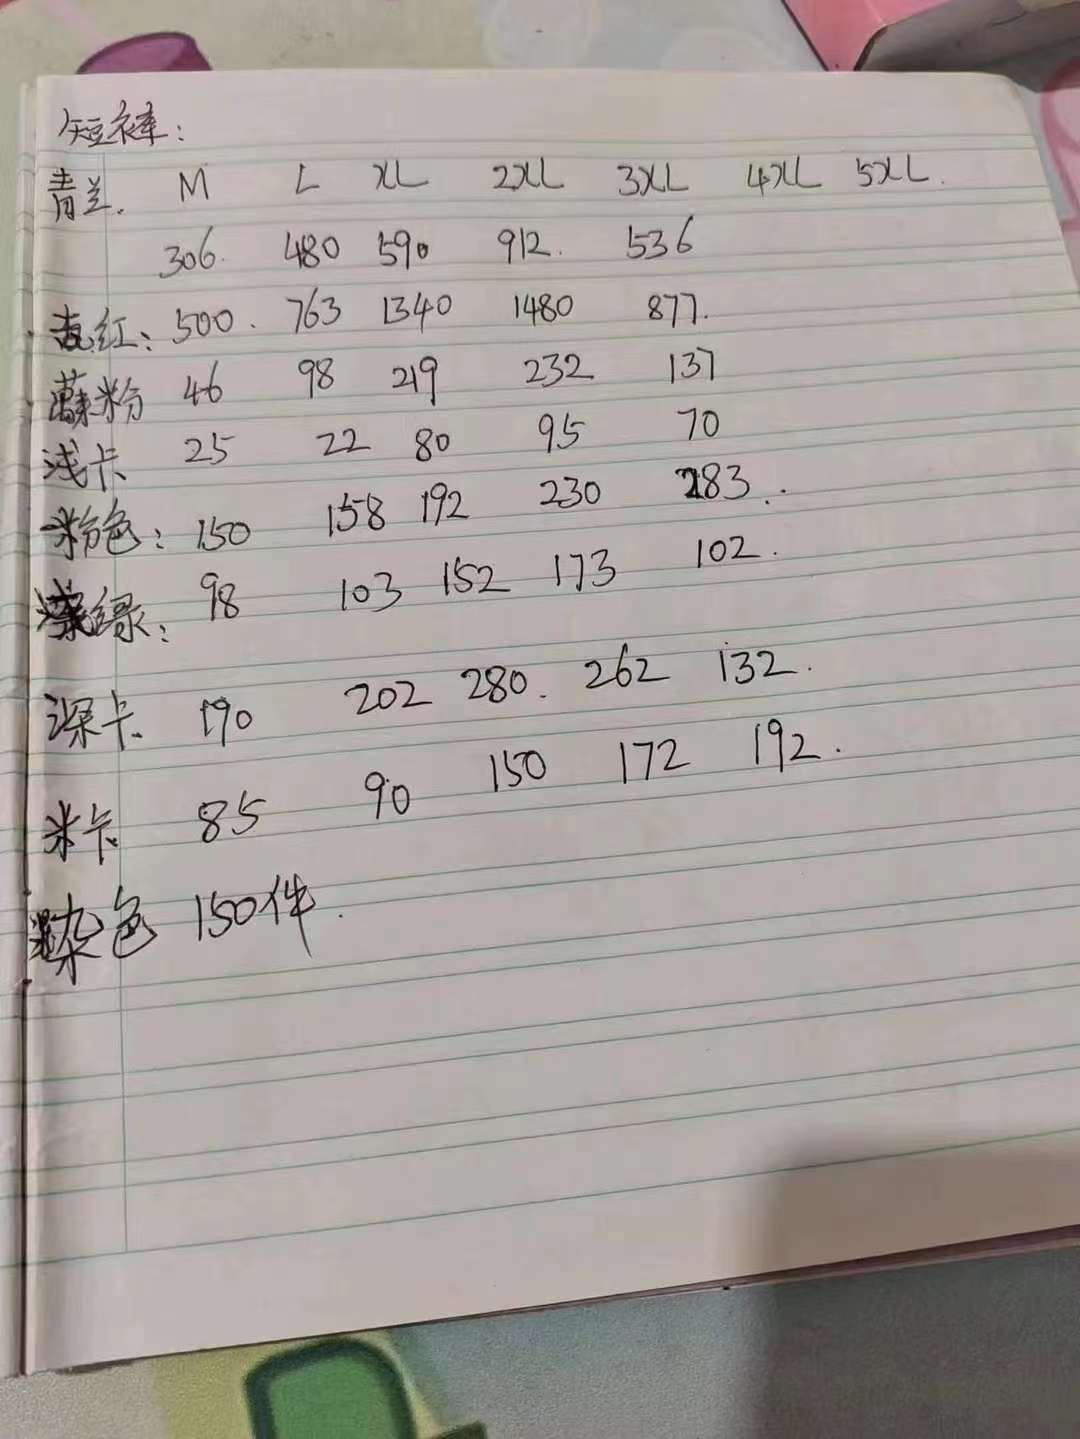 短裤:
青兰. M L XL 2XL 3XL 4XL 5XL.
306. 480 590 912. 536
红: 500. 763 1340 1480 877.
藕粉 46 98 219 232 137
浅卡 25 22 80 95 70
粉色: 150 158 192 230 183.
绿: 98 103 152 173 102.
深卡 190 202 280. 262 132.
米卡 85 90 150 172 192.
染色 150件.